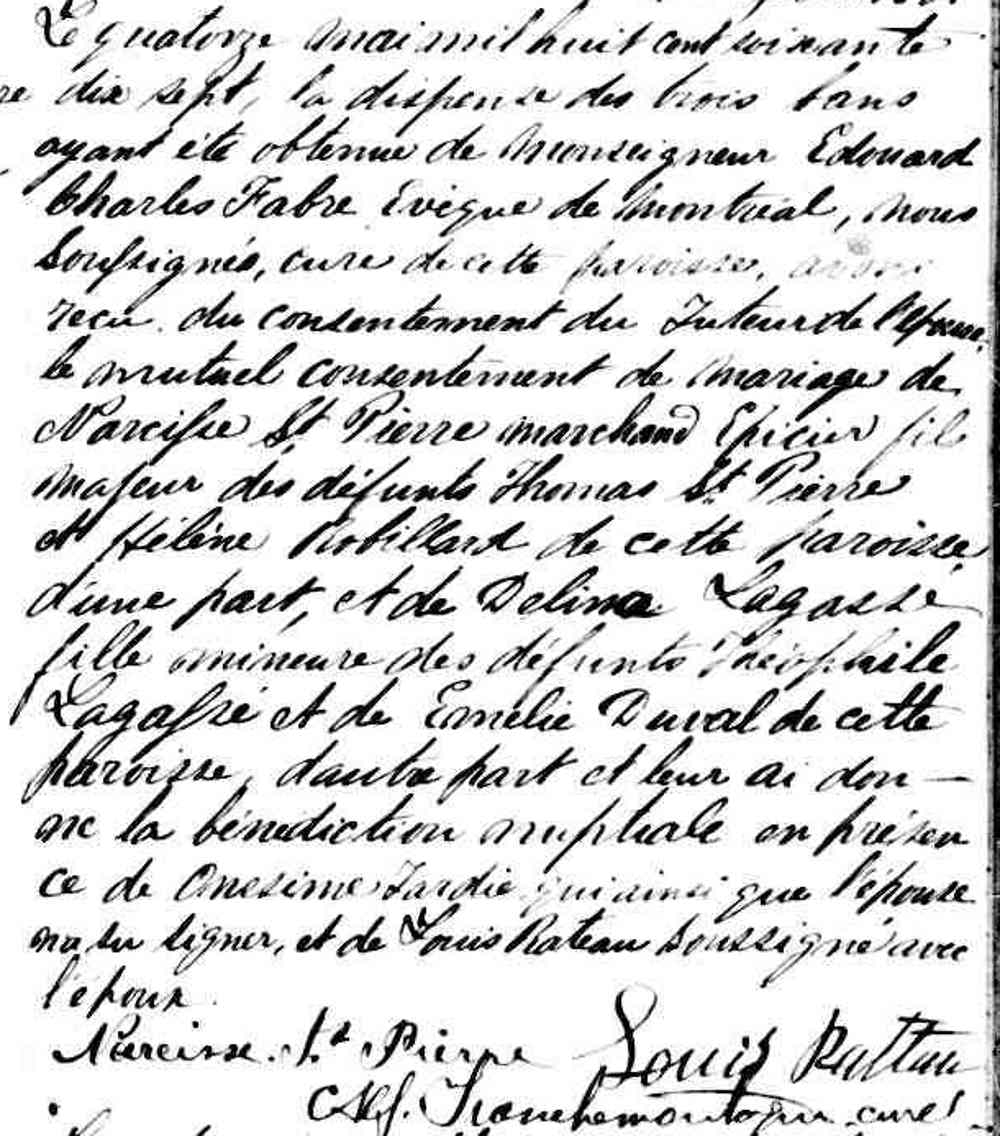 Le quatorze mai mil huit cent soixante
re dix sept, la dispense des trois bans
ayant été obtenue de Monseigneur Edouard
Charles Fabre Evèque de Montréal, nous
Soussigné, curé de cette paroisse, avons
reçu du consentement du Tuteur de l'épouse,
le mutuel consentement de mariage de
Narcisse St Pierre marchand Epicier fils
majeur des défunts Thomas St Pierre
et Hélène Robillard de cette paroisse,
d'une part, et de Delina Lagassé
fille mineure des défunts Théophile
Lagassé et de Emélie Duval de cette
paroisse, d'autre part et leur ai don—
né la bénédiction nuptiale en présen
ce de Onesime Tardie qui ainsi que l'épouse
n'a su signer, et de Louis Rateau soussigné avec
l'époux.
Narcisse St Pierre Louis Rattau
Alf. Tranchemontagne curé